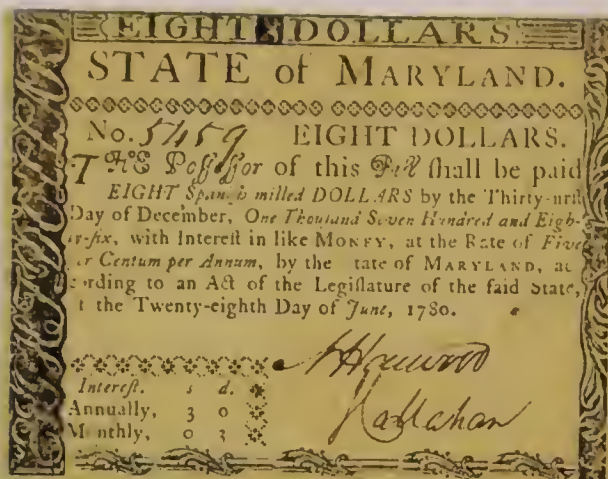 EIGHT DOLLARS
STATE of MARYLAND.
No. 5459 EIGHT DOLLARS.
THE Poſſeſſor of this Bill ſhall be paid
EIGHT Spaniſh milled DOLLARS by the Thirty-firſt
Day of December, One Thouſand Seven Hundred and Eigh-
ty-ſix, with Intereſt in like MONEY, at the Rate of Five
per Centum per Annum, by the State of MARYLAND, ac
cording to an Act of the Legiſlature of the ſaid State,
the Twenty-eighth Day of June, 1780.
Intereſt. s d.
Annually, 3 0
Monthly, 0 3
Harwood
Callahan